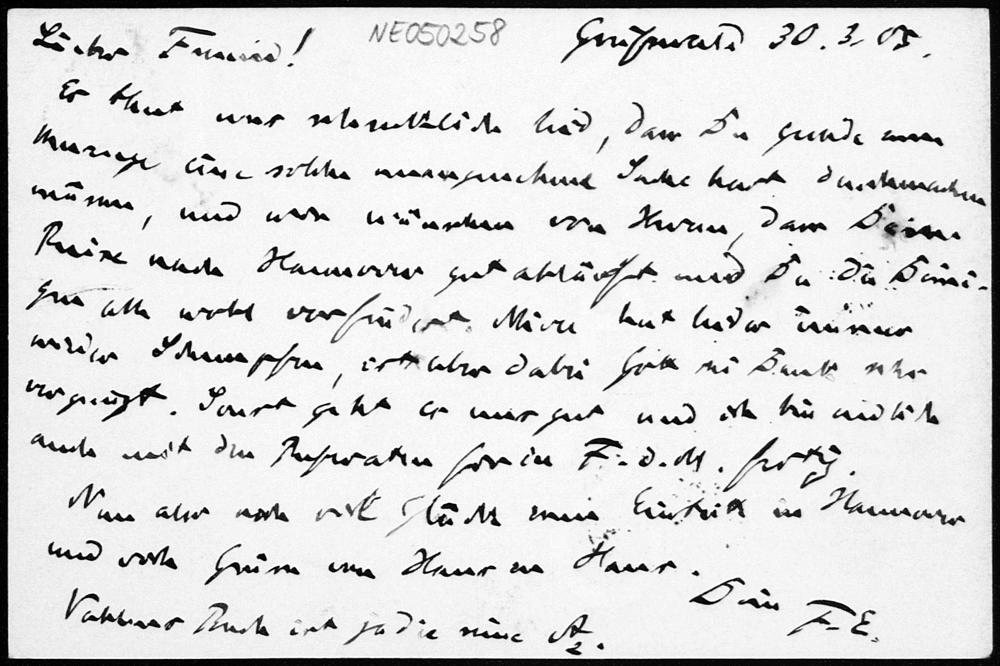 NE050258
Lieber Freund! Greifswald 30.3.05.
Es thut uns schrecklich leid, dass Du gerade am
eine solche unangenehme Sache hast durchmachen
müssen, und wir wünschen von Herzen, dass Deine
Reise nach Hannover gut abläuft und Du die Deini-
gen alle wohl vorfindest. hat leider immer
wieder Schnupfen, ist aber dabei Gott sei Dank sehr
vergnügt. Sonst geht es uns gut und ich bin endlich
auch mit den Referaten für die F. d. M. fertig.
Nun also noch viel Glück zum Eintritt in Hannover
und viele Grüsse von Haus zu Haus.
Dein F. E.
Vahlens Buch ist ja die reine A2.